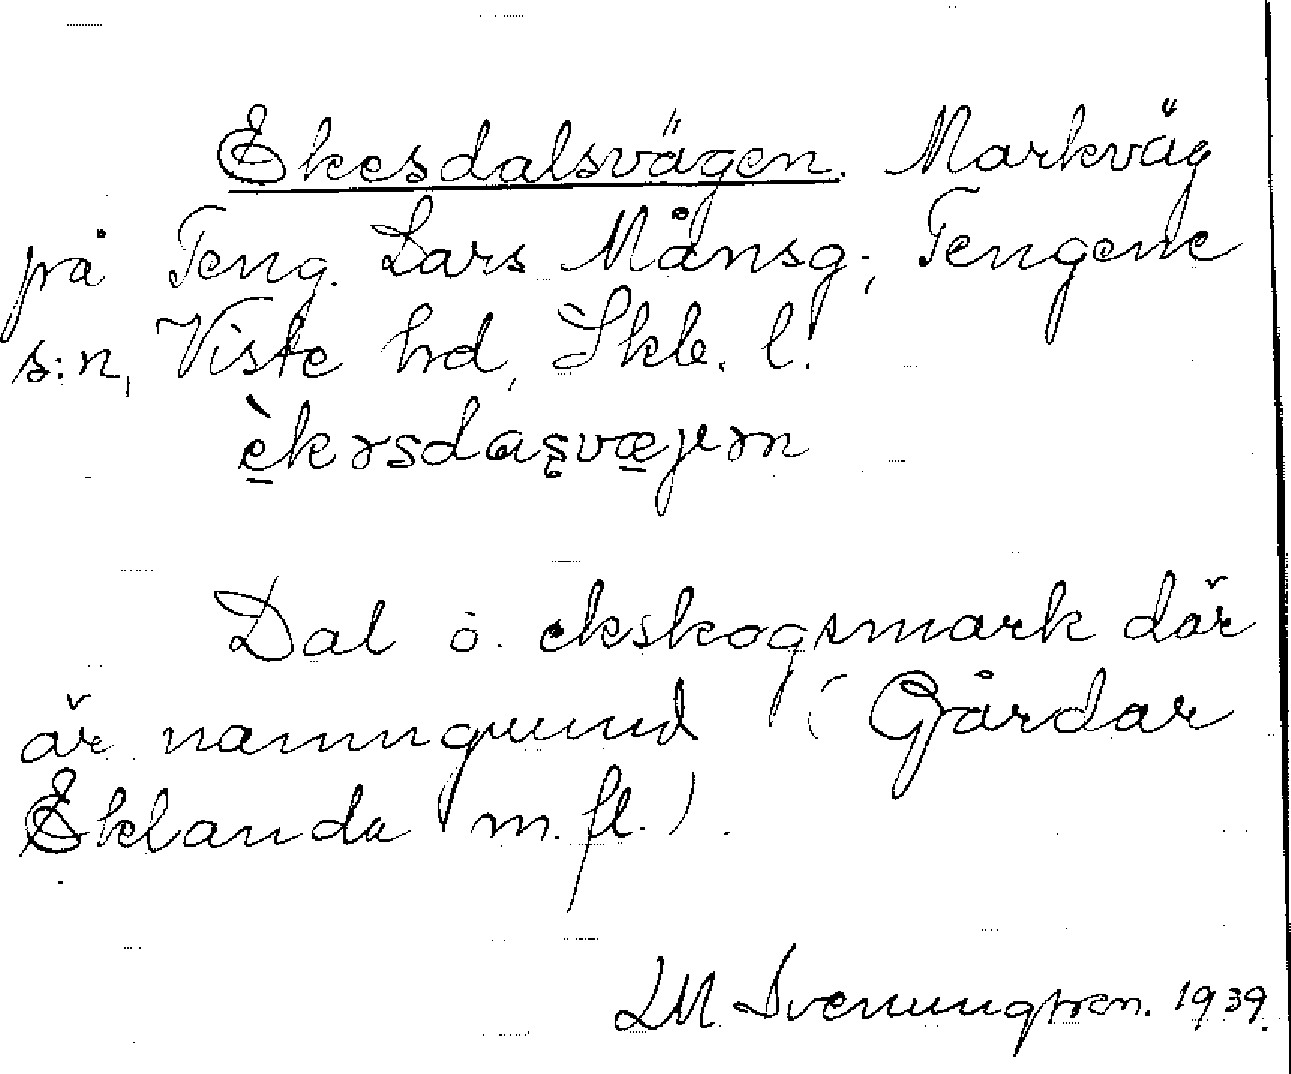 Ekesdalsvägen. Markväg
på Teng. Lars Månsg., Tengene
s:n, Viste hd, Skb. l.
è̱kəsdaʂvæ̱jən
Dal o. ekskogsmark där
är namngrund (Gårdar
Eklanda m. fl.).
LM. Svenungsson. 1939.